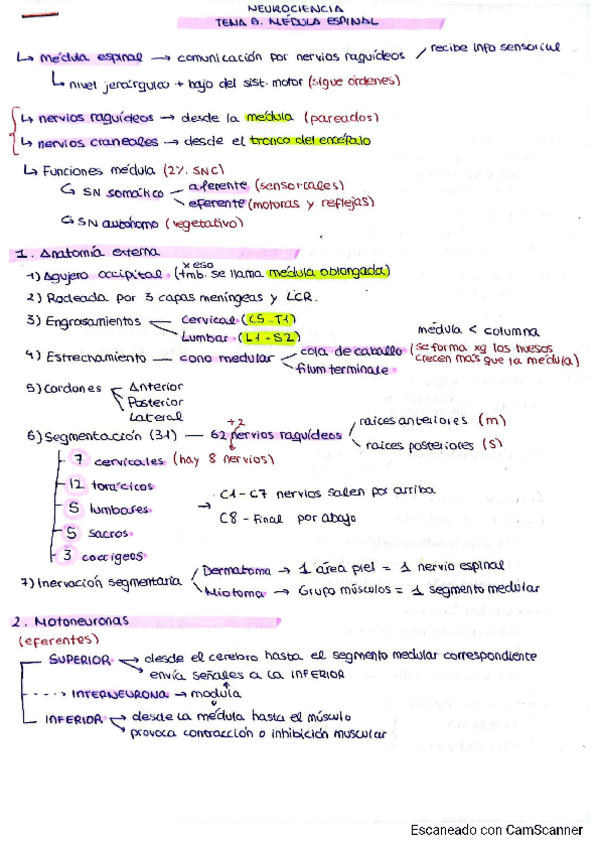 NEUROCIENCIA
TEMA 6. MÉDULA ESPINAL
↳ médula espinal → comunicación por nervios raquídeos / recibe info sensorial
↳ nivel jerárquico + bajo del sist. motor (sigue órdenes)
↳ nervios raquídeos → desde la médula (pareados)
↳ nervios craneales → desde el tronco del encéfalo
↳ Funciones médula (2% SNC)
SN somático — aferente (sensoriales)
eferente (motoras y reflejas)
SN autónomo (vegetativo)
1. Anatomía externa
1) Agujero occipital (x eso tmb. se llama médula oblongada)
2) Rodeada por 3 capas meníngeas y LCR.
3) Engrosamientos — Cervical (C5-T1)
Lumbar (L1-S2)
médula < columna
4) Estrechamiento — cono medular — cola de caballo (se forma xq los huesos crecen más que la médula)
filum terminale
5) Cordones — Anterior
Posterior
Lateral
6) Segmentación (31) — 62 nervios raquídeos / raíces anteriores (m)
+2
raíces posteriores (s)
7 cervicales (hay 8 nervios)
12 torácicos
5 lumbares
5 sacros
3 coccigeos
→ C1-C7 nervios salen por arriba
C8-Final por abajo
7) Inervación segmentaria / Dermatoma → 1 área piel = 1 nervio espinal
Miotoma → Grupo músculos = 1 segmento medular
2. Motoneuronas
(eferentes)
SUPERIOR → desde el cerebro hasta el segmento medular correspondiente
envía señales a la INFERIOR
INTERNEURONA → modula
INFERIOR → desde la médula hasta el músculo
provoca contracción o inhibición muscular
Escaneado con CamScanner